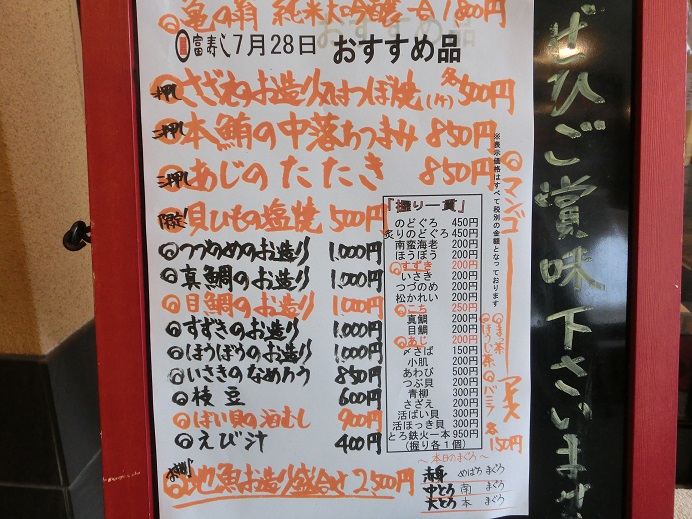 亀の翁 純米大吟醸 一合 1,800円
富寿し 7月28日 おすすめ品
一押し さざえのお造り又はつぼ焼(1ヶ) 各500円
二押し 本鮪の中落ちつまみ 850円
三押し あじのたたき 850円
限定! 貝ひもの塩焼 500円
つづのめのお造り 1,000円
真鯛のお造り 1,000円
目鯛のお造り 1,000円
すずきのお造り 1,000円
ほうぼうのお造り 1,000円
いさきのなめろう 850円
枝豆 600円
ばい貝の酒むし 900円
えび汁 400円
地魚お造り盛合せ 2,500円
『握り一貫』
のどぐろ 450円
炙りのどぐろ 450円
南蛮海老 200円
ほうぼう 200円
すずき 200円
いさき 200円
つづのめ 200円
松かれい 200円
こち 250円
真鯛 200円
目鯛 200円
あじ 200円
〆さば 150円
小肌 200円
あわび 500円
つぶ貝 200円
青柳 300円
さざえ 200円
活ばい貝 300円
活ほっき貝 300円
とろ鉄火一本 950円
(握り各1個)
～本日のまぐろ～
赤身 めばちまぐろ
中とろ 南まぐろ
大とろ 本まぐろ
※表示価格はすべて税別の金額となっております
マンゴー
ほうじ茶
バニラ
アイス
各150円
ぜひご賞味下さいませ